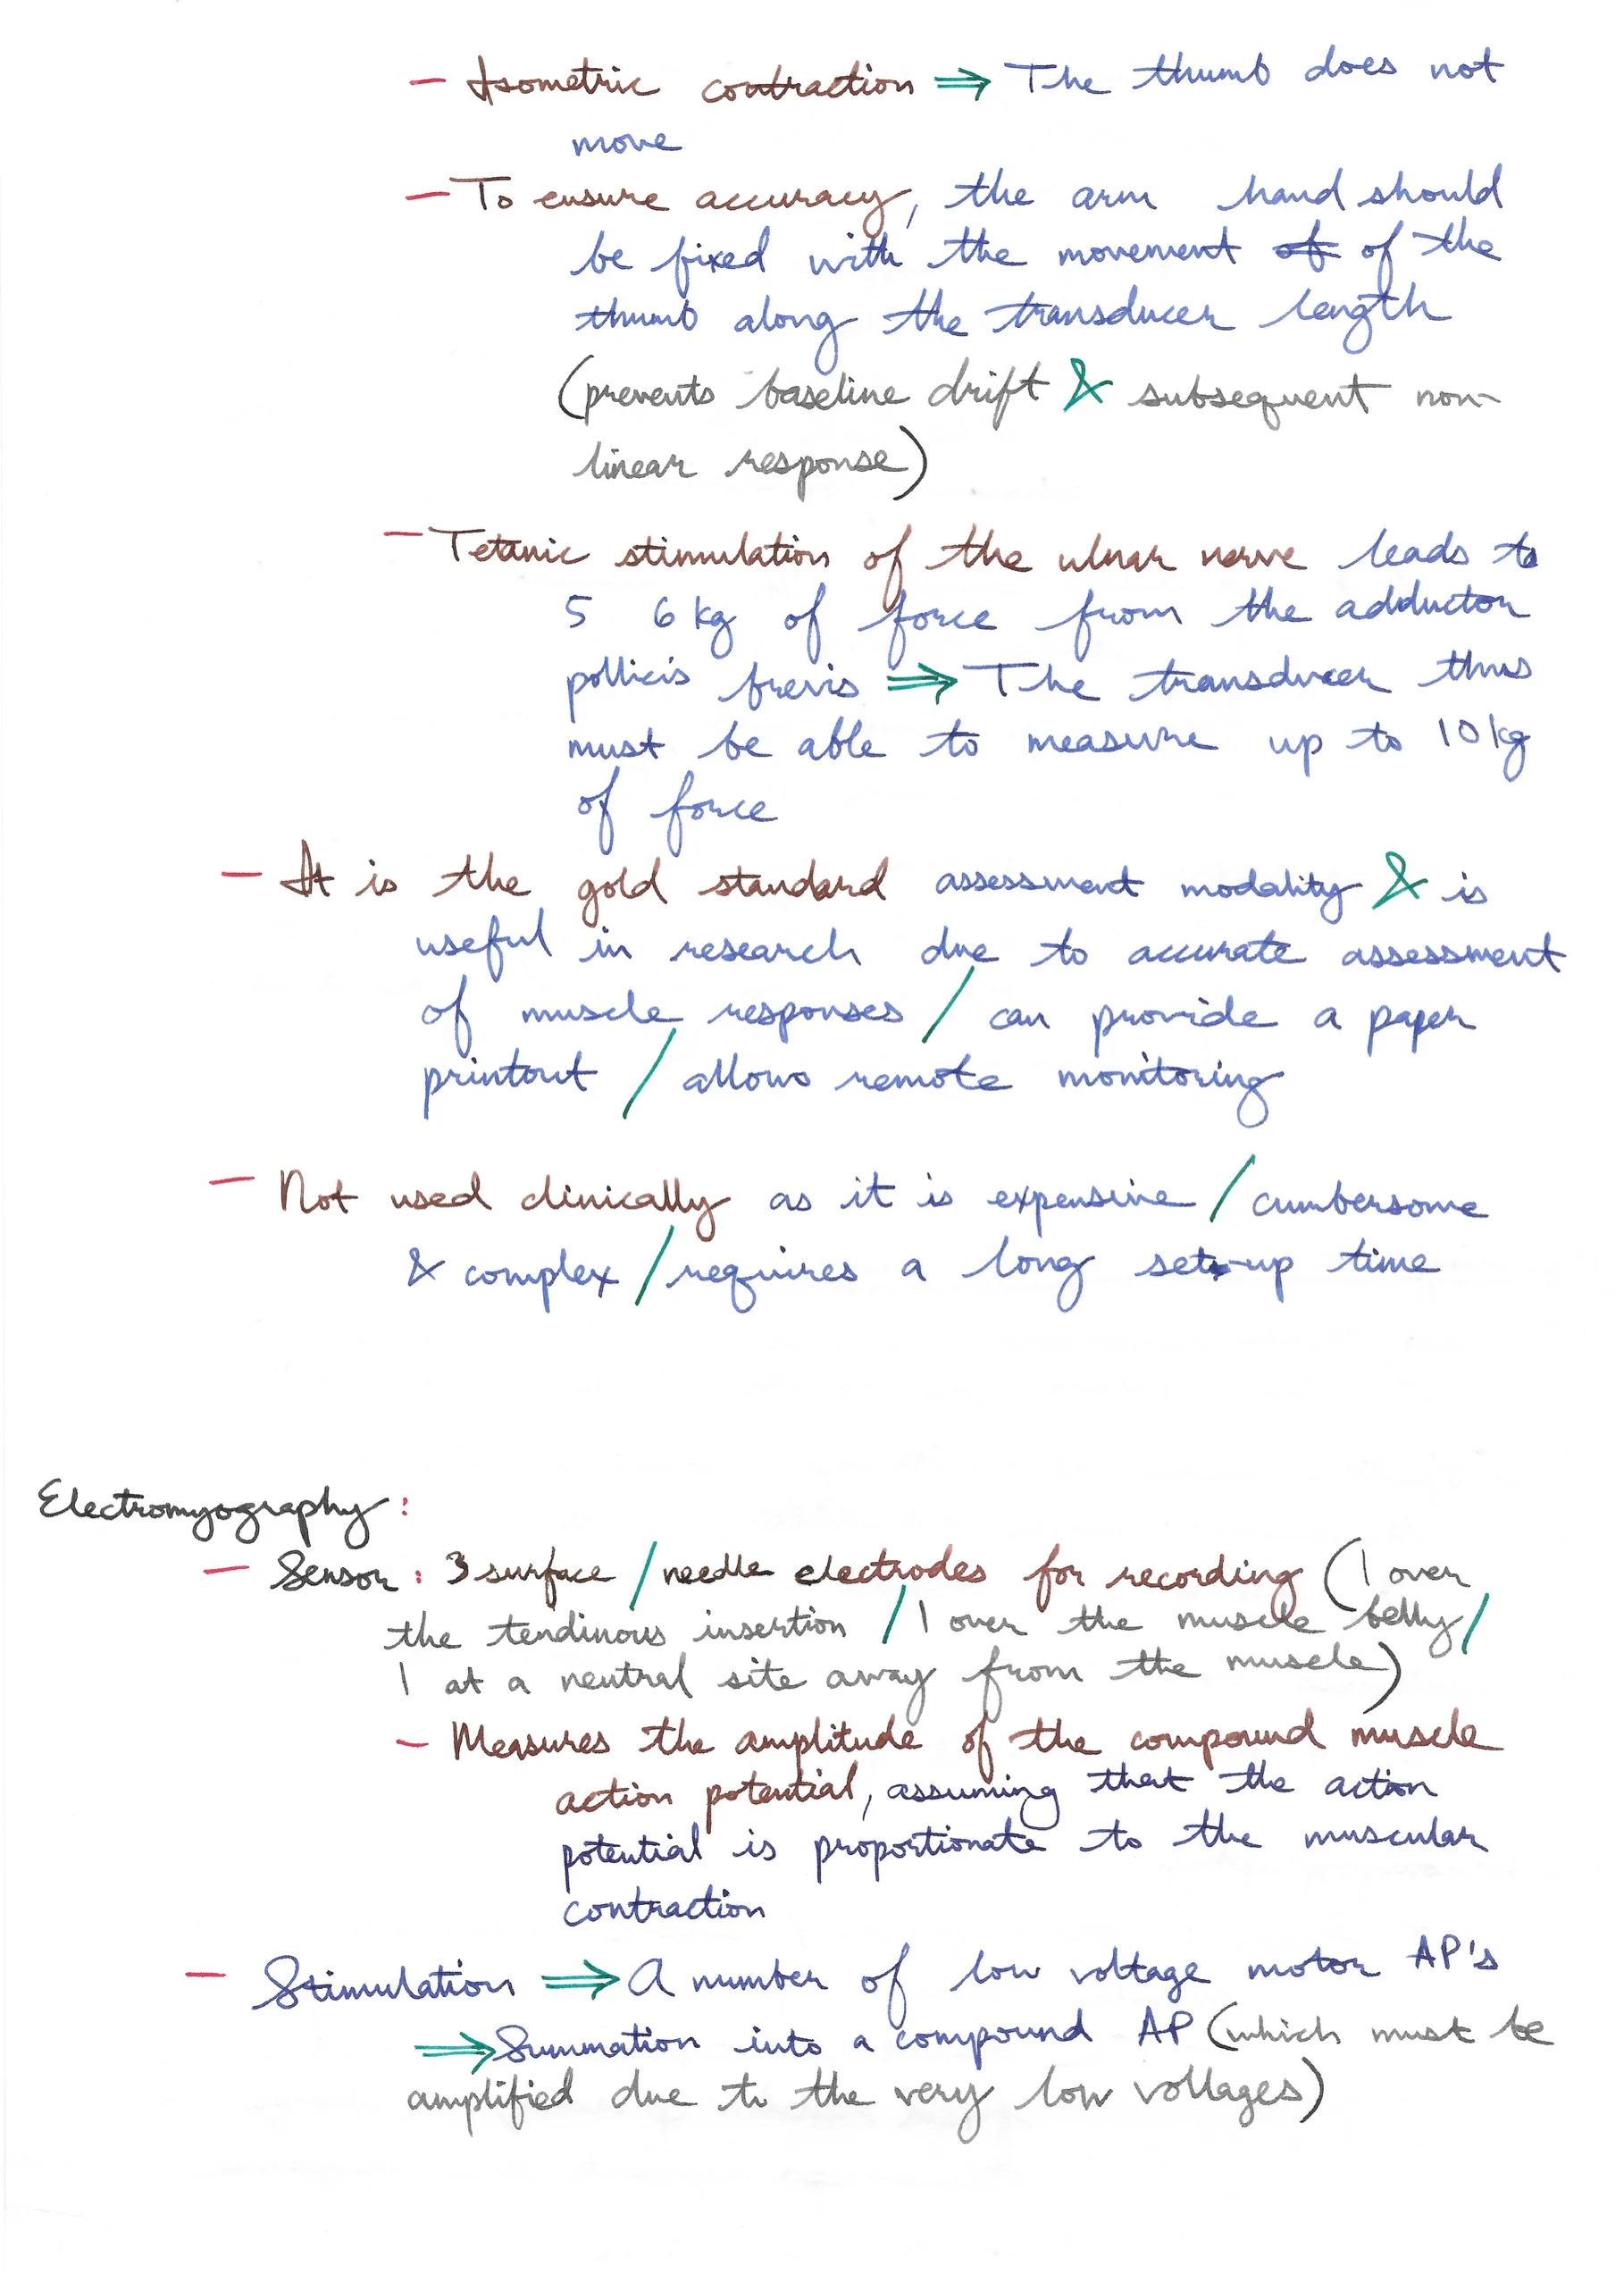 - Isometric contraction ⇒ The thumb does not
move
- To ensure accuracy, the arm hand should
be fixed with the movement of of the
thumb along the transducer length
(prevents baseline drift & subsequent non-
linear response)
- Tetanic stimulation of the ulnar nerve leads to
5 6 kg of force from the adductor
pollicis brevis ⇒ The transducer thus
must be able to measure up to 10 kg
of force
- It is the gold standard assessment modality & is
useful in research due to accurate assessment
of muscle responses / can provide a paper
printout / allows remote monitoring
- Not used clinically as it is expensive / cumbersome
& complex / requires a long set-up time
Electromyography:
- Sensor: 3 surface / needle electrodes for recording (1 over
the tendinous insertion / 1 over the muscle belly /
1 at a neutral site away from the muscle)
- Measures the amplitude of the compound muscle
action potential, assuming that the action
potential is proportionate to the muscular
contraction
- Stimulation ⇒ A number of low voltage motor AP's
⇒ Summation into a compound AP (which must be
amplified due to the very low voltages)